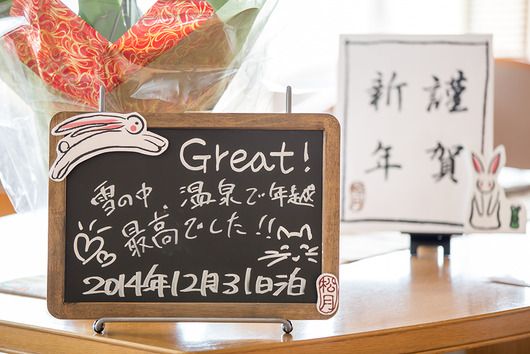 Great!
雪の中、温泉で年越
最高でした!!
2014年12月31日泊
松月
謹賀
新年